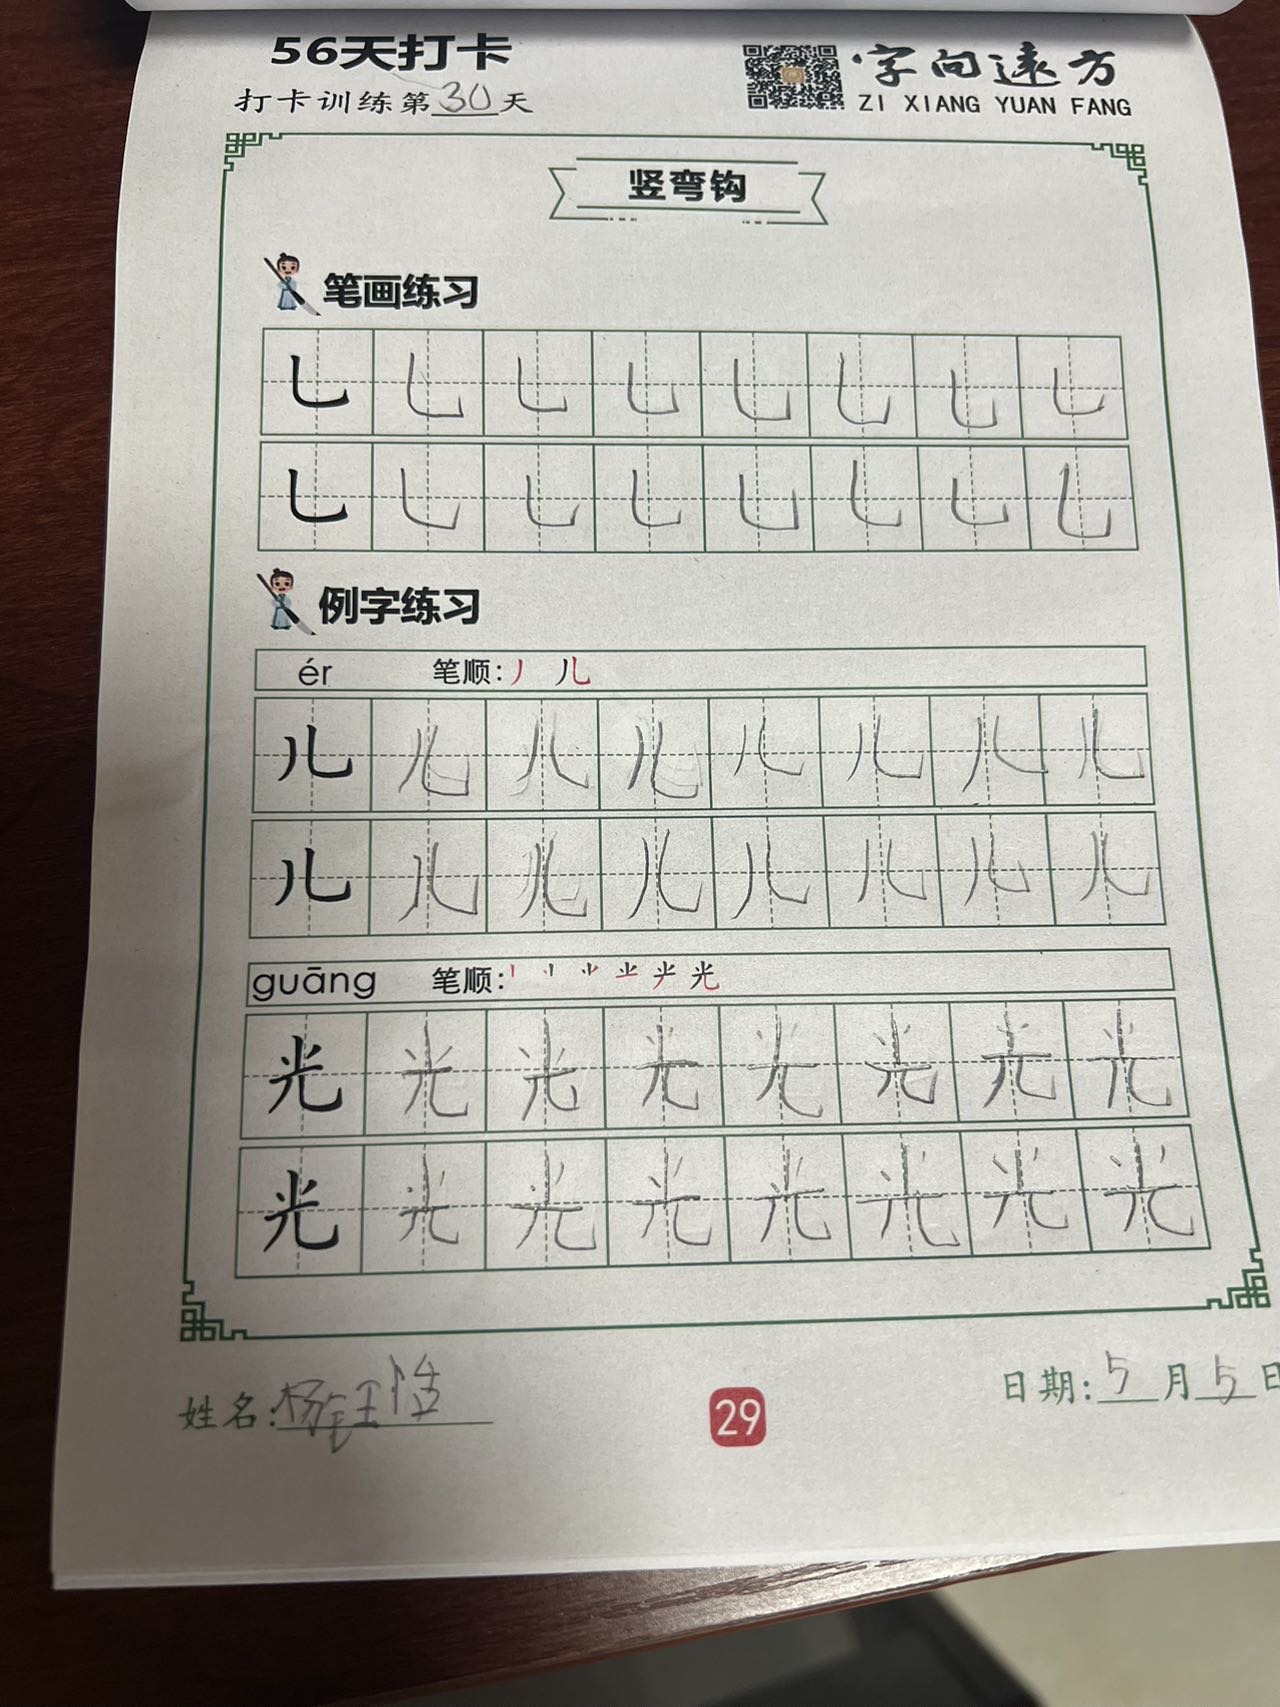 56天打卡
打卡训练第30天
字向远方
ZI XIANG YUAN FANG
竖弯钩
笔画练习
乚 乚 乚 乚 乚 乚 乚 乚
乚 乚 乚 乚 乚 乚 乚 乚
例字练习
ér 笔顺:丿 儿
儿 儿 儿 儿 儿 儿 儿 儿
儿 儿 儿 儿 儿 儿 儿 儿
guāng 笔顺: 光
光 光 光 光 光 光 光 光
光 光 光 光 光 光 光 光
姓名:
29
日期:5月5日